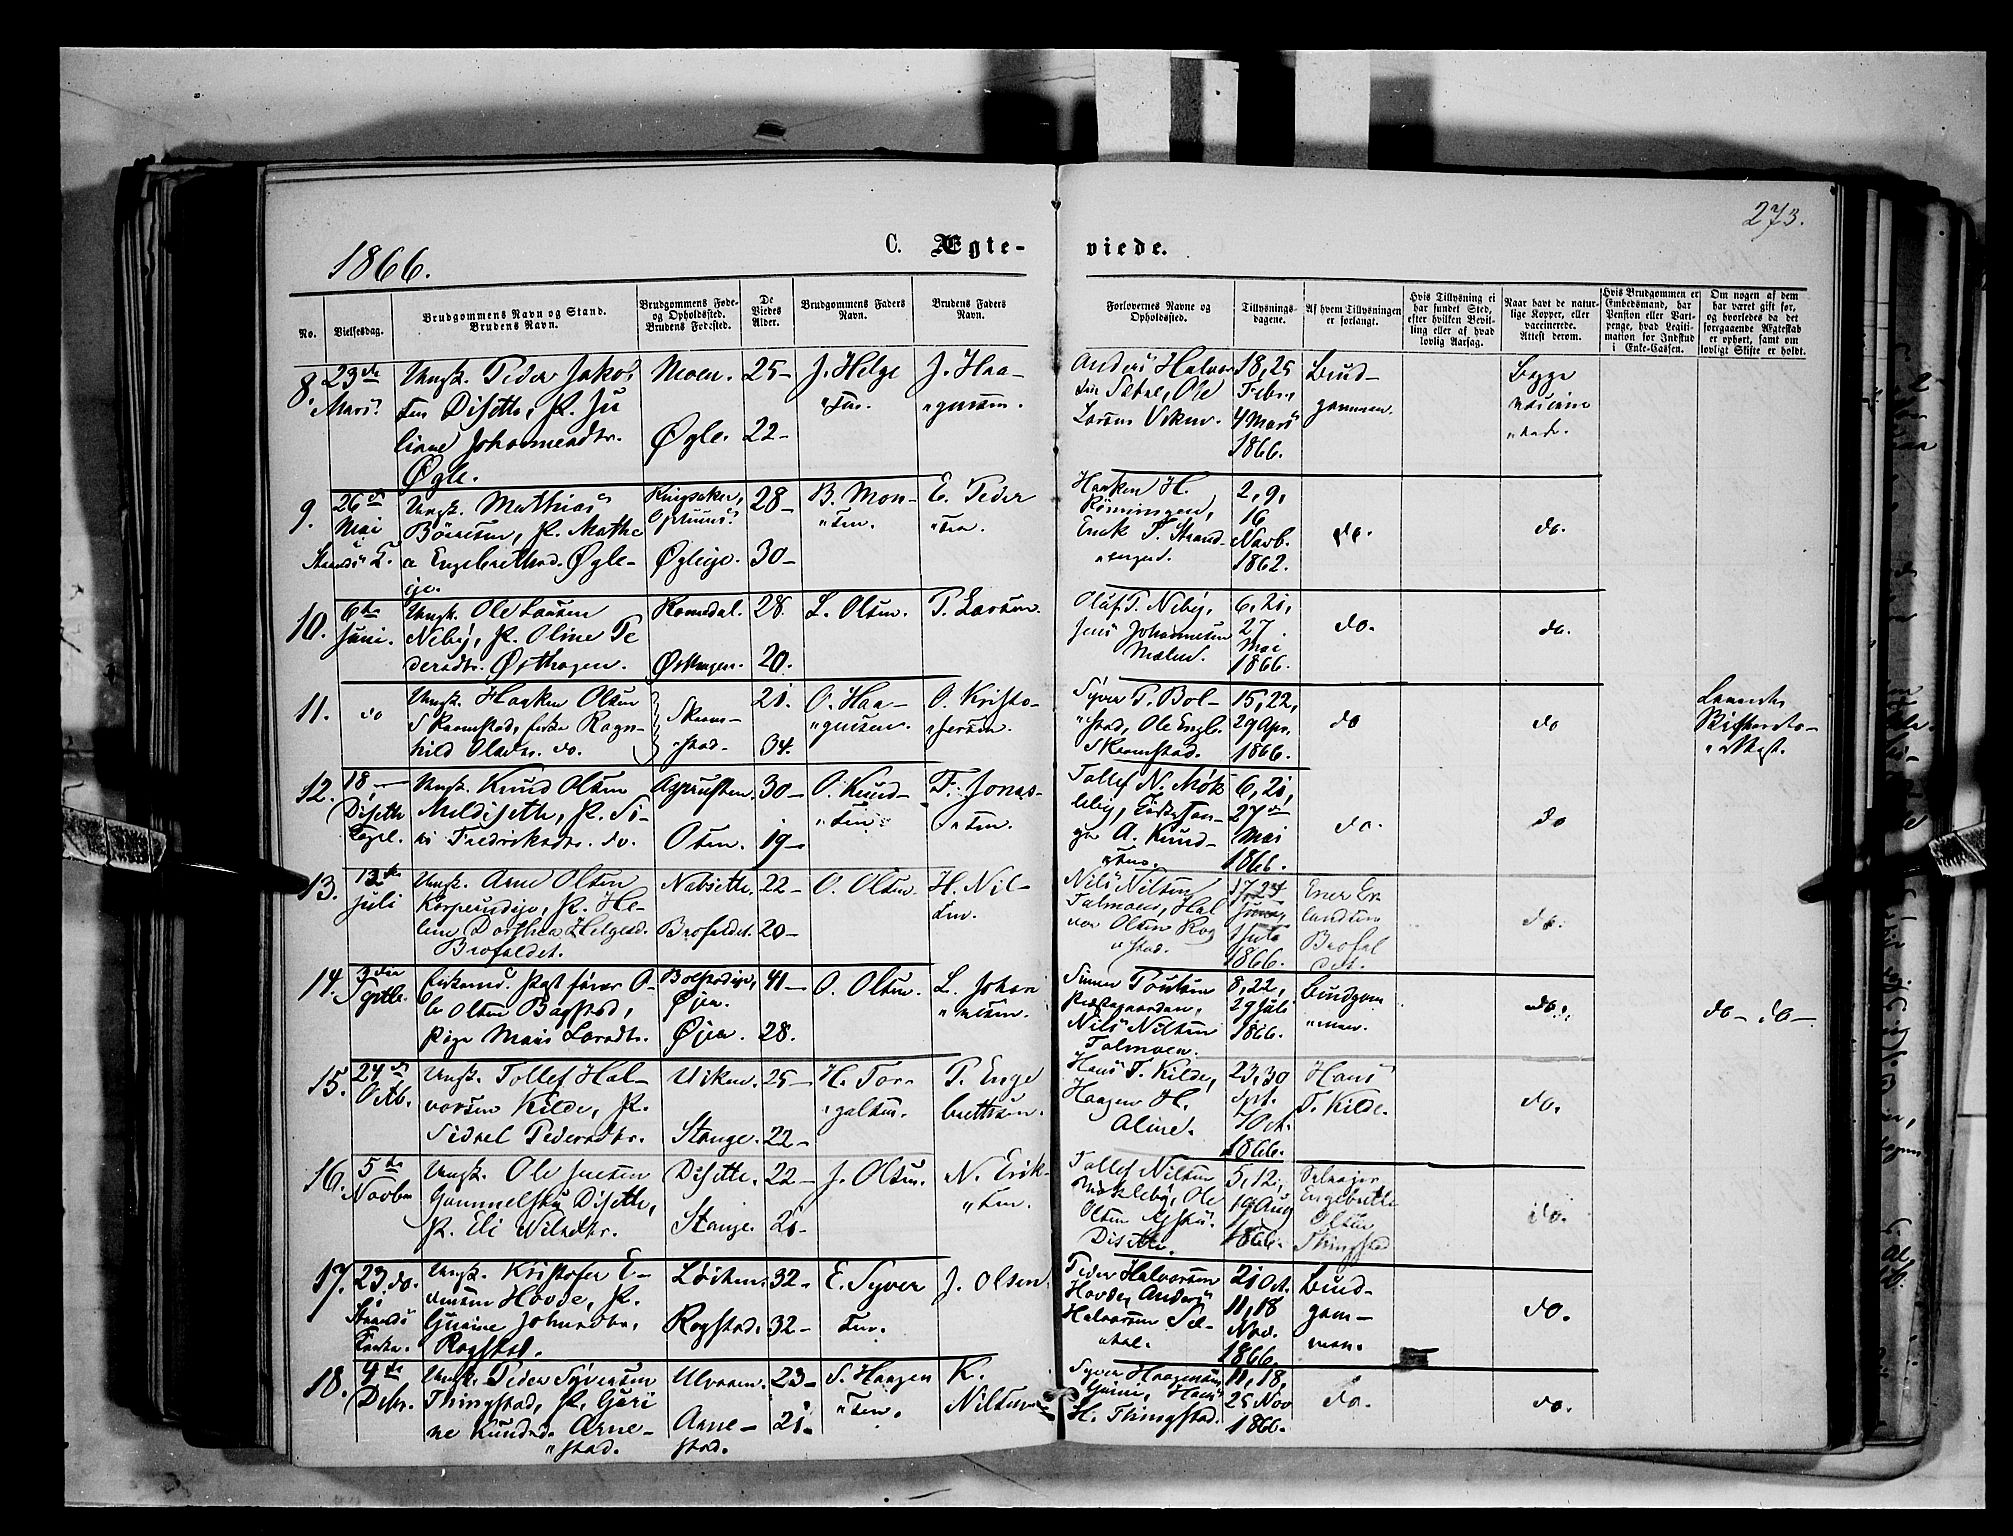 273.
1866.
C. Ægte-
viede.
No.
Vielsesdag.
Brudgommens Navn og Stand.
Brudens Navn.
Brudgommens Føde-
og Opholdssted.
Brudens Fødested.
De
Viedes
Alder.
Brudgommens Faders
Navn.
Brudens Faders
Navn.
Forlovernes Navne og
Opholdssted.
Tillysnings-
dagene.
Af hvem Tillysningen
er forlangt.
Hvis Tillysning ei
har fundet Sted,
efter hvilken Bevil-
ling eller af hvad
lovlig Aarsag.
Naar havt de natur-
lige Kopper, eller
vaccinerede.
Attest derom.
Hvis Brudgommen er
Embedsmand, har
Pension eller Vart-
penge, hvad Legiti-
mation for Indskud
i Enke-Cassen.
Om nogen af dem
har været gift før,
og hvorledes da det
foregaaende Ægteskab
er ophørt, samt om
lovligt Skifte er holdt.
8. 23de
Marts
Ungk. Peder Jakob
sen Disette, P. Ju
liane Johannesdtr.
Øgle.
Moen.
Øgle.
25-
22-
J. Helge
"sen.
J. Haa-
"gensen.
Anders Halvor
sen Sætre, Ole
Larsen Viken.
18, 25
Febr.,
4 Marts
1866.
Brud-
gommen.
Begge
vaccine
"rede.
9. 26de
Mai
i
Strands K.
Ungk. Mathias
Børresen, P. Mathe
a Engebrethsd. Øgle-
eje.
Ringsaker,
Øgleeje.
28-
30-
B. Mon-
"sen.
E. Peder
"sen.
Haaken H.
Rønningen,
Erik P. Strand-
"engen.
2, 9,
16
Novb.
1862.
do.
do.
10. 6te
Juni.
Ungk. Ole Larsen
Neby, P. Oline Pe
dersdtr. Østhagen.
Romsdal.
Østhagen.
28.
20.
L. Olsen.
P. Larsen.
Olaf P. Neby,
Jens Johannesen
Mælen.
6, 21,
27
Mai
1866.
do.
do.
11. do
Ungk. Haaken Olsen
Skramstad, Enke Ragn-
hild Olsdtr. do.
Skram-
"stad.
21.
34.
O. Haa-
"gensen.
O. Kristo-
"fersen.
Syver P. Bol-
"stad, Ole Engb.
Skramstad.
15, 22,
29 Apr.
1866.
do
do
12. 18
Disette
Capel.
Ungk. Knud Olsen
Meldisette, P. Si-
ri Fredriksdtr. do.
Osen.
30-
19-
O. Knud-
"sen.
F. Jonas-
"sen.
6, 21,
27de
Mai
1866.
do.
do
13. 13de
Juli
Ungk. Arne Olsen
P. He-
lene Dorthea Helgesd.
Brofaldet.
Nabsette.
Brofaldet.
22-
20-
O. Olsen.
H. Nil-
sen.
Nils Nilsen
Talmoen, Hal
vor Olsen Rog
"stad.
17, 24
Juni,
1 Juli
1866.
Ener Er
landsen
Brofal
det.
do.
14.
Enkemd.
Ole Olsen Bagstad,
Pige Mari Larsdtr.
Bolstadeje,
Øjen.
Øjen.
41-
28.
O. Olsen.
L. Johan
"nesen.
Simen Poulsen
Præstegaarden,
Nils Nilsen
Talmoen.
8, 22,
29 Juli
1866.
Brudgom
"men.
do.
do- do-
15. 24de
Octb.
Ungk. Tollef Hal-
vorsen Kilde, P.
Sidsel Pedersdtr.
Viken.
Stange.
25-
22-
H. Tor-
"galsen.
P. Enge
bretsen.
Hans T. Kilde,
Haagen H.
Aline.
23, 30
Spt.
7 Oct.
1866.
Hans
T. Kilde.
do.
16. 5te
Novbr
Ungk. Ole Jensen
Gammelstu Disette,
P. Eli Nilsdtr.
Disette.
Stange.
22-
21-
J. Olsen.
N. Erik-
"sen.
Tollef Nilsen
Møkleby, Ole
Olsen Nystu
Disette.
5, 12,
19 Aug
1866.
Engebrette
Olsen
Thingstad
do.
17. 23. do.
i
Strands
Kirke.
Ungk. Kristofer E-
vensen Hovde, P.
Gurine Johnsdtr.
Rogstad.
Løiten.
Rogstad.
32-
32-
E. Syver
sen.
J. Olsen.
Peder Halvorsen
Hovde, Anders
Halvorsen Sæ-
tre.
21 Oct.
11, 18
Nov.
1866.
Brud-
gom-
men.
do.
18. 4de
Debr.
Ungk. Peder Syversen
Thingstad, P. Guri
ne Knudsd. Arne-
"stad.
Ulvaaen.
Arne-
stad.
23-
21.
S. Haagen
"sen.
K.
Nilsen
Syver Haagensen
Grini, Hans
H. Thingstad.
11, 18,
25 Nov
1866.
do.
do.